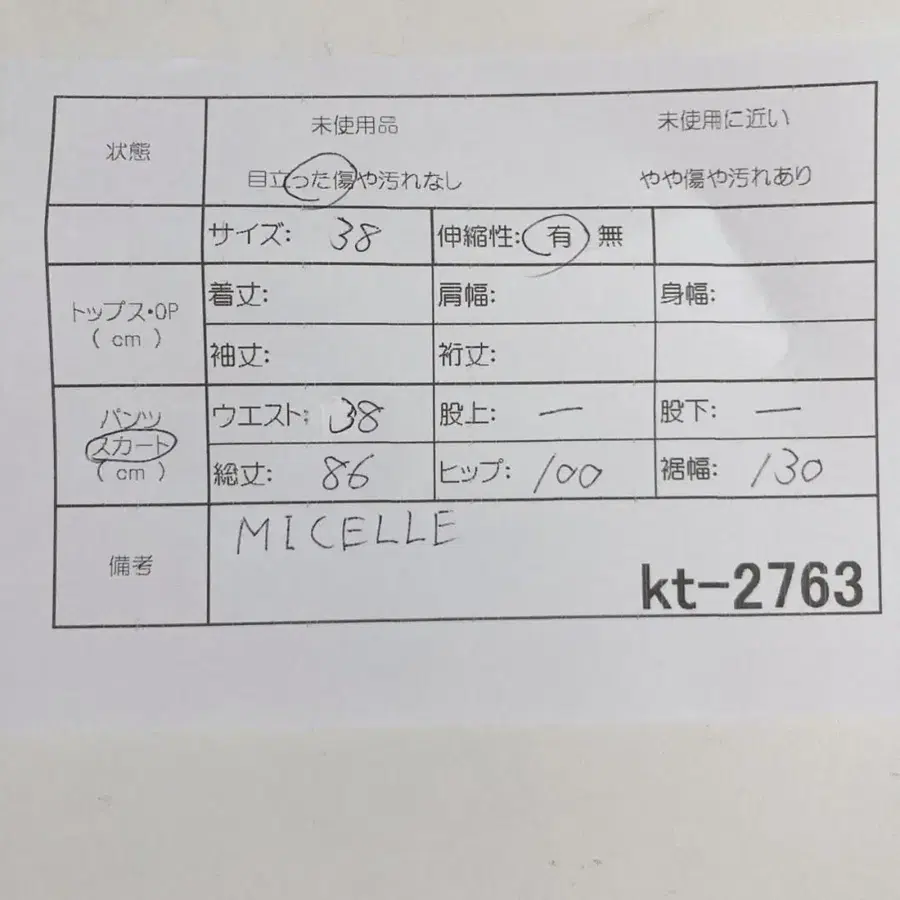 状態
未使用品 未使用に近い
目立った傷や汚れなし やや傷や汚れあり
サイズ: 38 伸縮性: 有 無
トップス・OP
( cm )
着丈: 肩幅: 身幅:
袖丈: 裄丈:
パンツ
スカート
( cm )
ウエスト: 38 股上: ー 股下: ー
総丈: 86 ヒップ: 100 裾幅: 130
備考
MICELLE
kt-2763